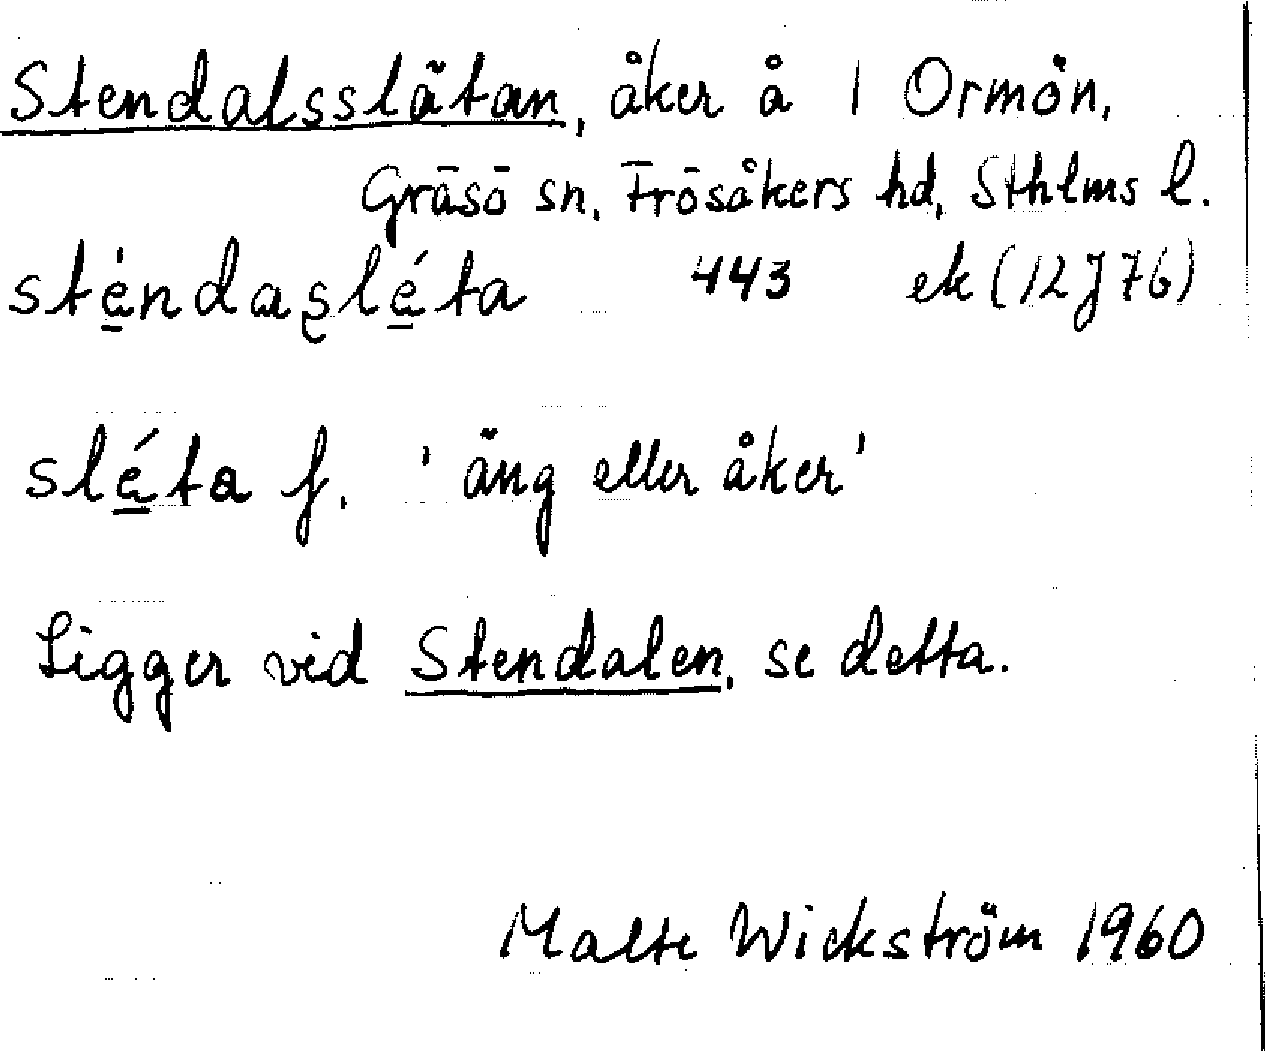 Stendalsslätan, åker å 1 Ormön,
Gräsö sn, Frösåkers hd, Sthlms l.
sté̱ndaʂlé̱ta 443 ek (12J76)
slé̱ta f. 'äng eller åker'
Ligger vid Stendalen, se detta.
Malte Wickström 1960